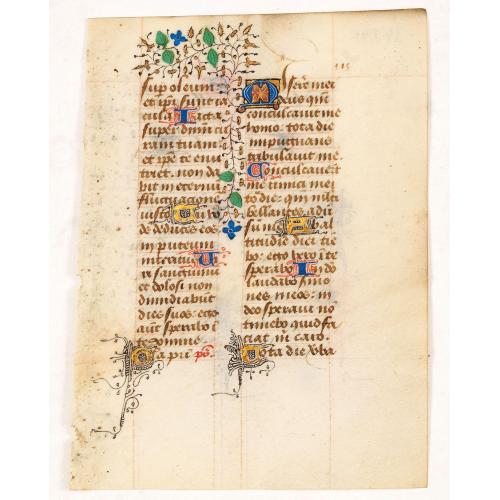 sup oleum
et ipi sunt ia
cula Iacta
super dnm cu
ram tuam
et ipse te enu
triet. non da
bit in eternu
fluctuacione
iusto
de deduces eos
in puteum
interitus
ri sanguinu
et dolosi non
dimidiabut
dies suos: ego
aut sperabo i
domine
ps
mei
deus qm
conculcauit me
homo: tota die
impugnans
tribulauit me.
Conculcauerut
me inimici mei
tota die: qm multi
bellantes adu
sum
titudie diei tie
bo: ego uero i te
sperabo In deo
laudabo smo
nes meos: in
deo sperabo no
timebo quid fa
ciat m caro.
Tota die vba